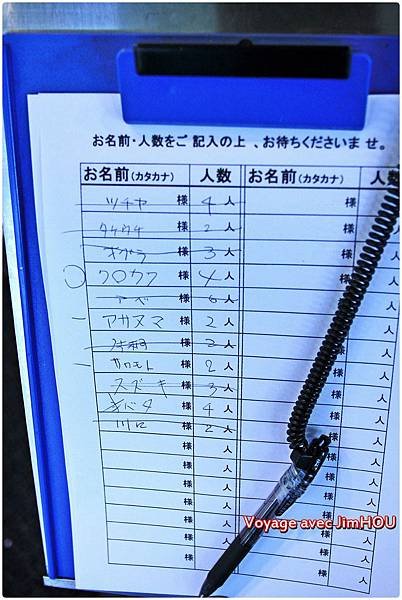 お名前・人数をご 記入の上 、お待ちくださいま せ。
お名前(カタカナ) 人数 お名前(カタカナ) 人数
ツチヤ 様 4 人 様
タケウチ 様 2 人 様
オグラ 様 3 人 様
クロカワ 様 4 人 様
アベ 様 6 人 様
アカヌマ 様 2 人 様 人
様 2 人 様 人
カワモト 様 2 人 様 人
スズキ 様 3 人 様 人
様 4 人 様 人
川口 様 2 人 様 人
様 人 様 人
様 人 様 人
様 人 人
様 人 様 人
様 人 様 人
様 人 様 人
Voyage avec JimHOU